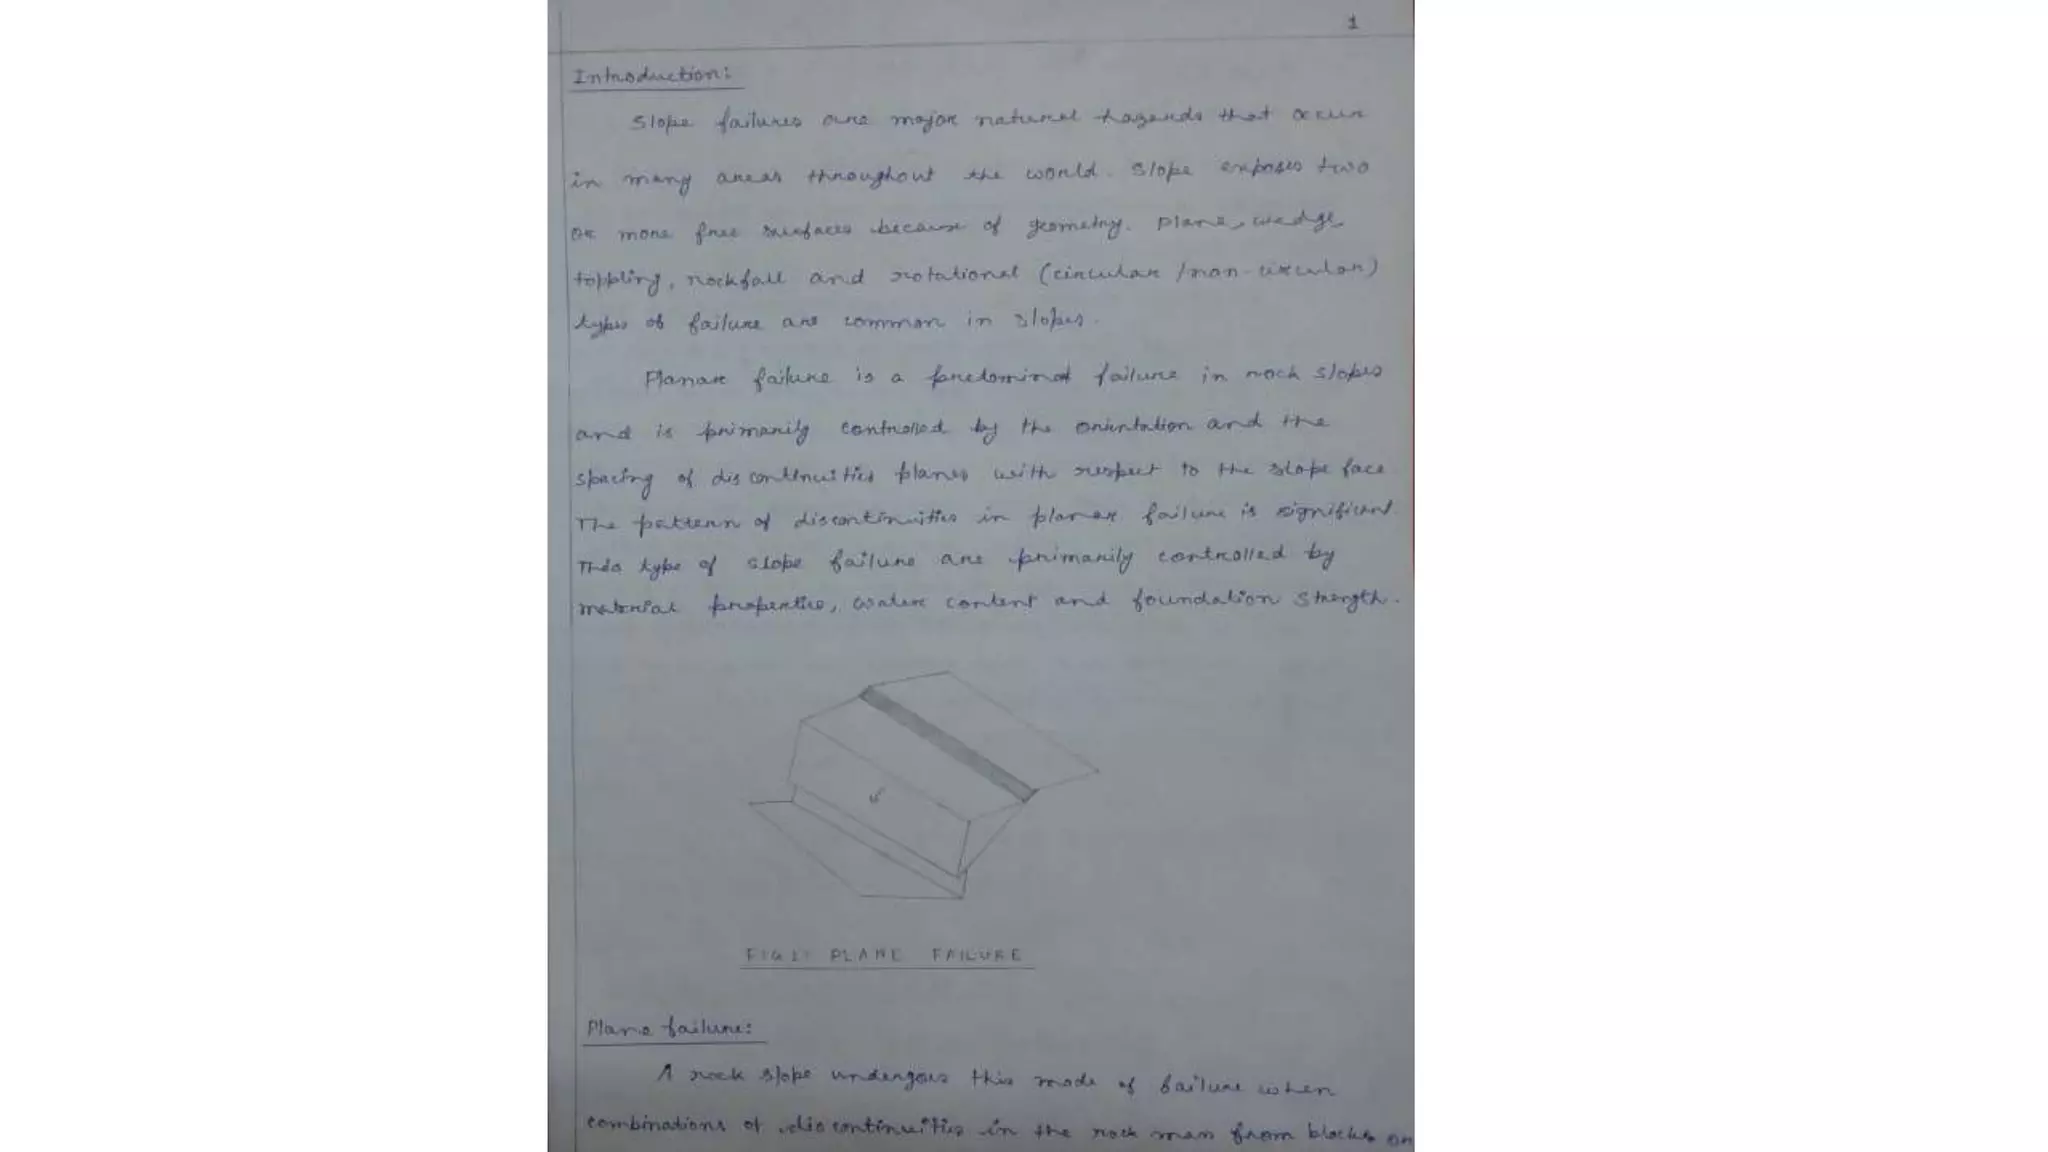 1
Introduction:
Slope failures are major natural hazards that occur
in many areas throughout the world. Slope exposes two
or more free surfaces because of geometry. Plane, wedge,
toppling, rockfall and rotational (circular /non-circular)
types of failure are common in slopes.
Planar failure is a predominat failure in rock slopes
and is primarily controlled by the orientation and the
spacing of discontinuities planes with respect to the slope face.
The pattern of discontinuities in planar failure is significant.
This type of slope failure are primarily controlled by
material properties, water content and foundation strength.
W
FIG 1: PLANE FAILURE
Plane failure:
A rock slope undergoes this mode of failure when
combinations of discontinuities in the rock mass from blocks or